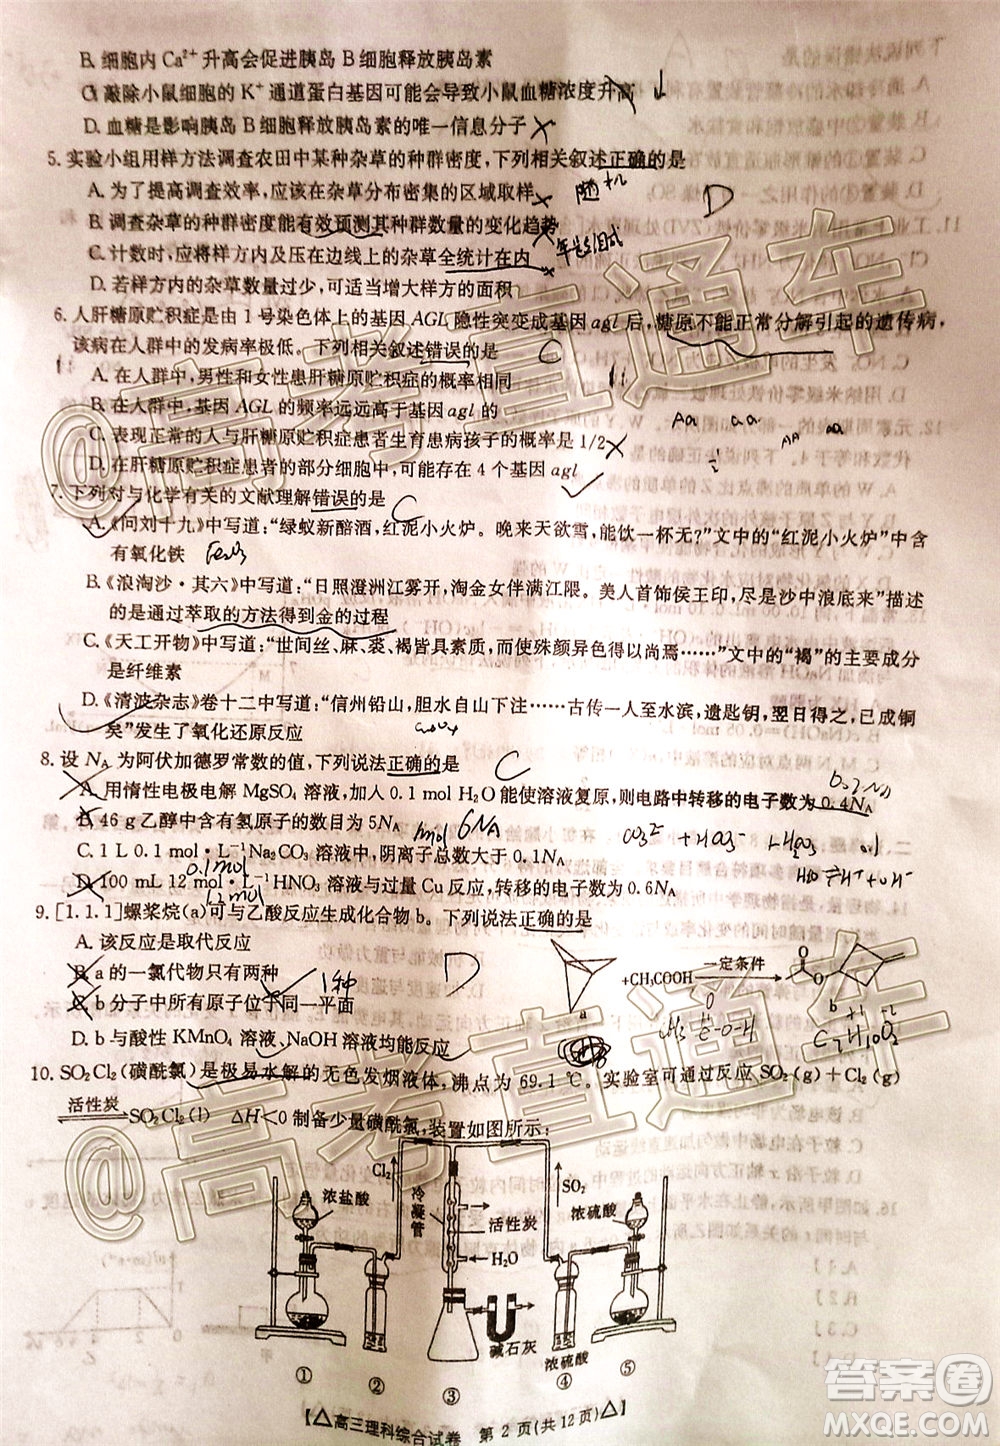 B. 细胞内 Ca²⁺ 升高会促进胰岛 B 细胞释放胰岛素
C. 敲除小鼠细胞的 K⁺ 通道蛋白基因可能会导致小鼠血糖浓度升高
D. 血糖是影响胰岛 B 细胞释放胰岛素的唯一信息分子
5. 实验小组用样方法调查农田中某种杂草的种群密度,下列相关叙述正确的是
A. 为了提高调查效率,应该在杂草分布密集的区域取样
D
B. 调查杂草的种群密度能有效预测其种群数量的变化趋势
C. 计数时,应将样方内及压在边线上的杂草全统计在内
D. 若样方内的杂草数量过少,可适当增大样方的面积
6. 人肝糖原贮积症是由 1 号染色体上的基因 AGL 隐性突变成基因 agl 后,糖原不能正常分解引起的遗传病,
该病在人群中的发病率极低。下列相关叙述错误的是
C
A. 在人群中,男性和女性患肝糖原贮积症的概率相同
B. 在人群中,基因 AGL 的频率远远高于基因 agl 的
Aa aa
AA aa
C. 表现正常的人与肝糖原贮积症患者生育患病孩子的概率是 1/2
D. 在肝糖原贮积症患者的部分细胞中,可能存在 4 个基因 agl
7. 下列对与化学有关的文献理解错误的是
C
A.《问刘十九》中写道:“绿蚁新醅酒,红泥小火炉。晚来天欲雪,能饮一杯无?”文中的“红泥小火炉”中含
有氧化铁
Fe₂O₃
B.《浪淘沙·其六》中写道:“日照澄洲江雾开,淘金女伴满江隈。美人首饰侯王印,尽是沙中浪底来”描述
的是通过萃取的方法得到金的过程
C.《天工开物》中写道:“世间丝、麻、裘、褐皆具素质,而使殊颜异色得以尚焉……”文中的“褐”的主要成分
是纤维素
D.《清波杂志》卷十二中写道:“信州铅山,胆水自山下注……古传一人至水滨,遗匙钥,翌日得之,已成铜
矣”发生了氧化还原反应
CuSO₄
8. 设 NA 为阿伏加德罗常数的值,下列说法正确的是
C
A. 用惰性电极电解 MgSO₄ 溶液,加入 0.1 mol H₂O 能使溶液复原,则电路中转移的电子数为 0.4NA
0.2NA
B. 46 g 乙醇中含有氢原子的数目为 5NA
1mol 6NA
C. 1 L 0.1 mol·L⁻¹ Na₂CO₃ 溶液中,阴离子总数大于 0.1NA
0.1mol
D. 100 mL 12 mol·L⁻¹ HNO₃ 溶液与过量 Cu 反应,转移的电子数为 0.6NA
9. [1.1.1]螺桨烷(a)可与乙酸反应生成化合物 b。下列说法正确的是
A. 该反应是取代反应
+CH₃COOH 一定条件
a
b
B. a 的一氯代物只有两种
1种
D
C. b 分子中所有原子位于同一平面
D. b 与酸性 KMnO₄ 溶液、NaOH 溶液均能反应
C₇H₁₀O₂
10. SO₂Cl₂(磺酰氯)是极易水解的无色发烟液体,沸点为 69.1 ℃。实验室可通过反应 SO₂(g)+Cl₂(g)
活性炭 SO₂Cl₂(l) ΔH<0 制备少量磺酰氯,装置如图所示:
Cl₂
SO₂
浓盐酸
冷凝管
活性炭
H₂O
浓硫酸
碱石灰
浓硫酸
① ② ③ ④ ⑤
【△高三理科综合试卷 第 2 页(共 12 页)△】
@高考直通车
@高考直通车
答案圈
MXQE.COM